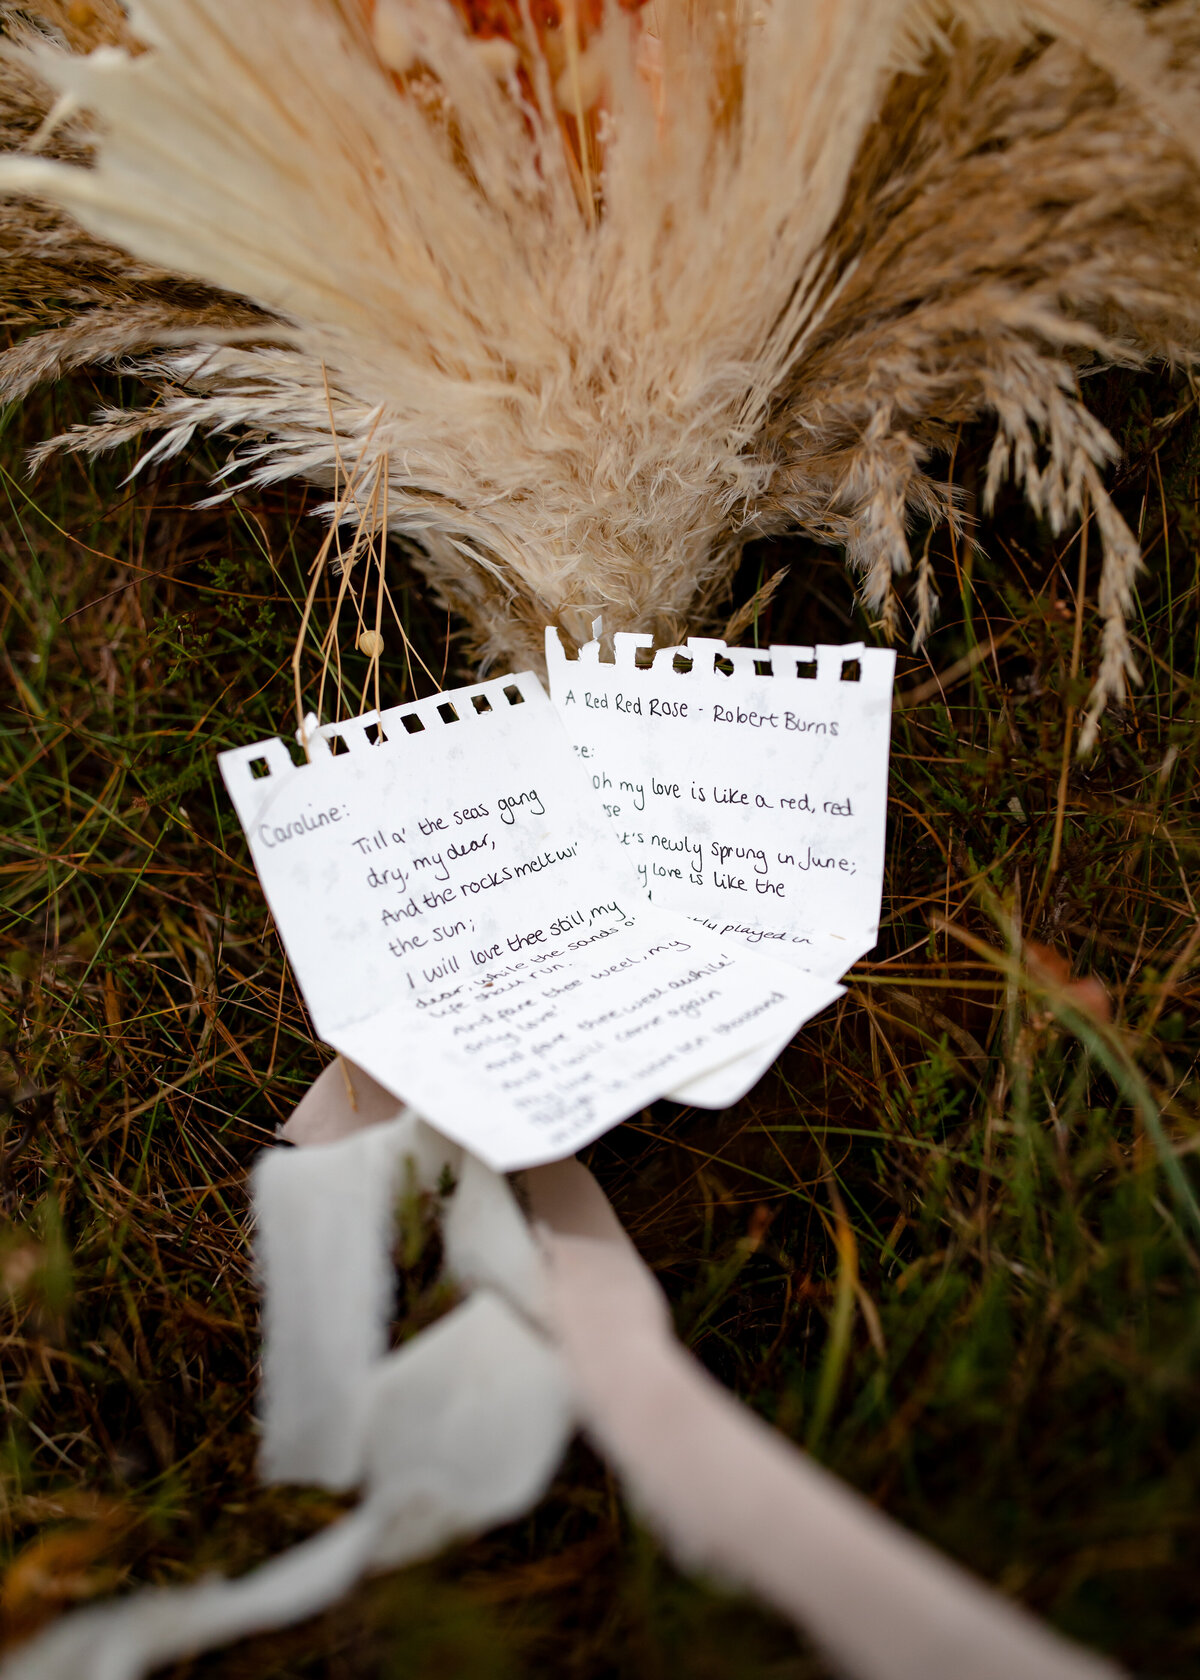 Caroline:
Till a' the seas gang
dry, my dear,
And the rocks melt wi'
the sun;
I will love thee still, my
dear, while the sands o'
life shall run.
And fare thee weel, my
only love'
And fare thee weel awhile!
And I will come again
My love
were ten thousand
A Red Red Rose - Robert Burns
ee:
Oh my love is like a red, red
se
t's newly sprung in June;
y love is like the
played in